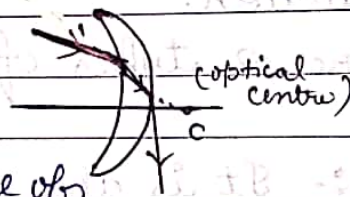 (optical
centre)
C
e obs